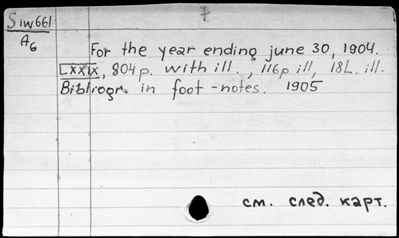 Siw661
A6
For the year ending june 30, 1904.
LXXIX, 804 p. with ill., 116p ill, 18L. ill.
Bibliogr. in foot-notes. 1905
см. след. карт.